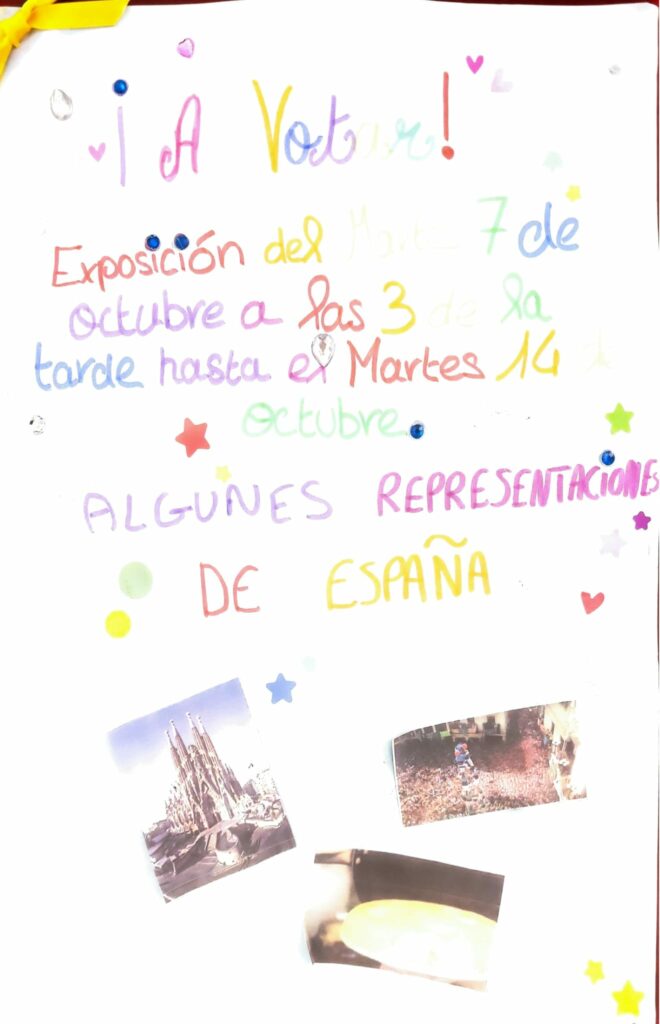 ¡A Votar!
Exposición del Martes 7 de
octubre a las 3 de la
tarde hasta el Martes 14
octubre
ALGUNES REPRESENTACIONES
DE ESPAÑA